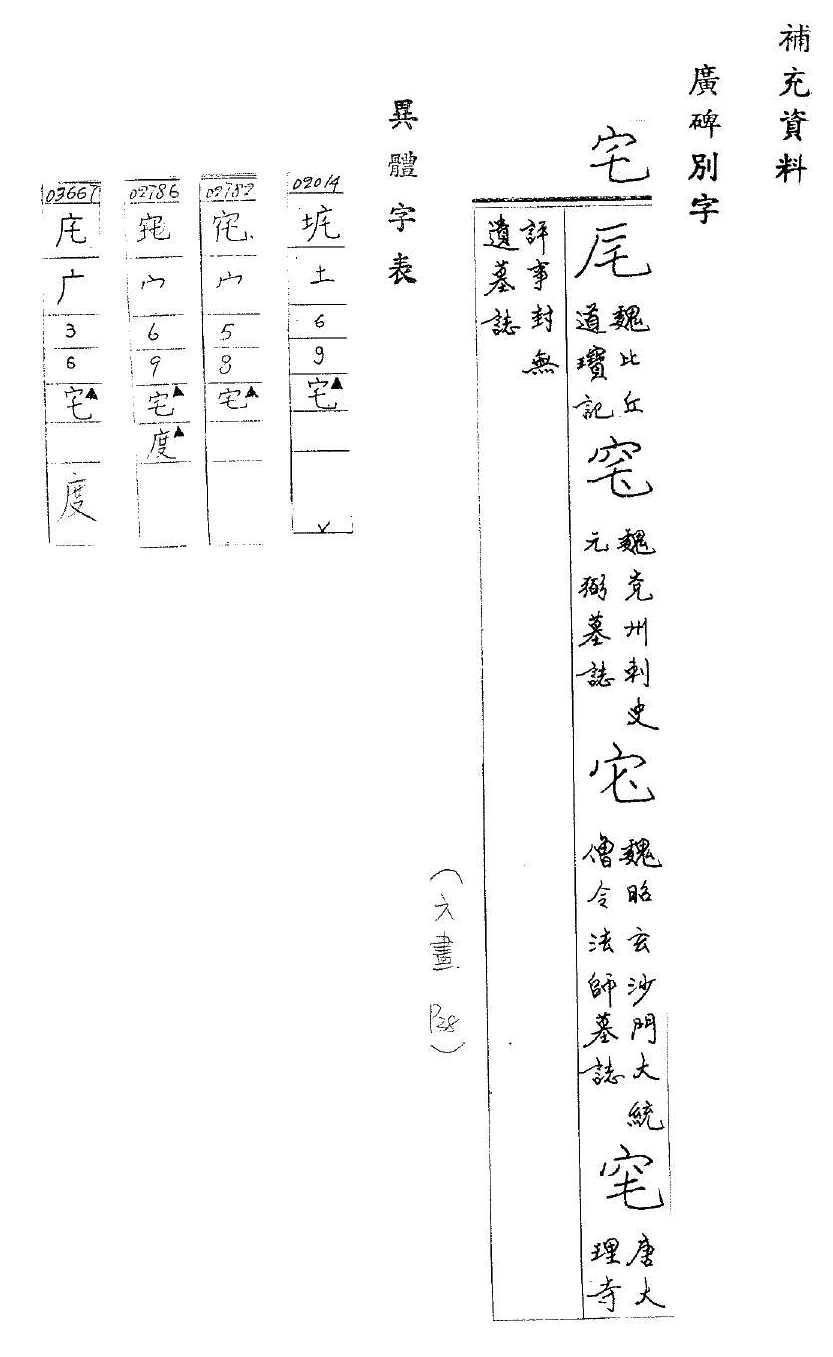 補充資料
廣碑別字
宅
㡯 魏比丘道瓊記 窀 魏兗州刺史元弼墓誌 宅 魏昭玄沙門大統僧令法師墓誌 窀 唐大理寺
評事封無遺墓誌
(六畫 P28)
異體字表
02014 垞 土 6 9 宅▲
02782 宅 宀 5 8 宅▲
02786 宅 宀 6 9 宅▲ 度▲
03667 㡯 广 3 6 宅▲ 度